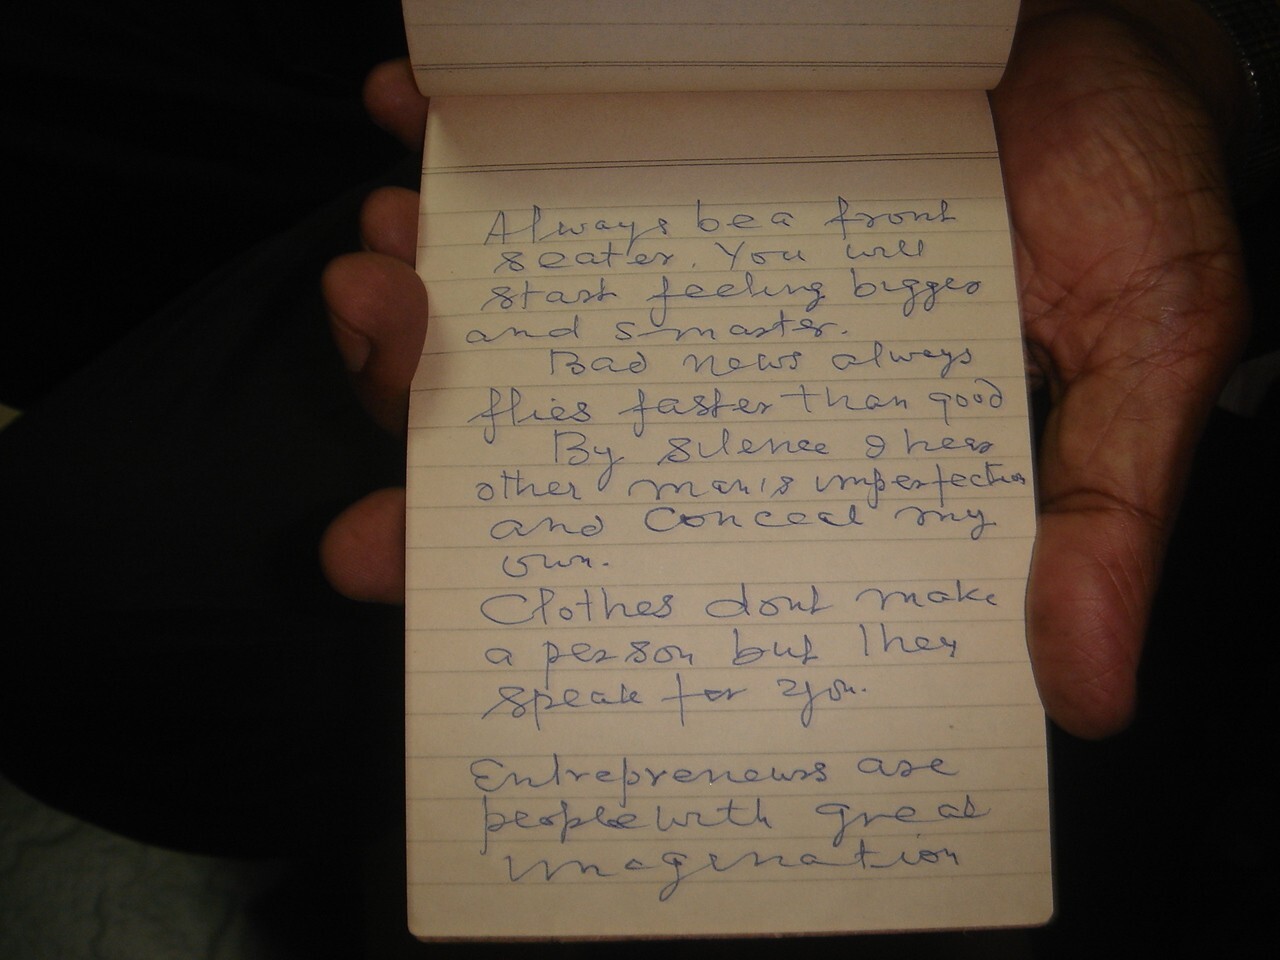 Always be a front
seater. You will
start feeling bigger
and smarter.
Bad news always
flies faster than good
By silence I hear
other man's imperfection
and conceal my
own.
Clothes dont make
a person but they
speak for you.
Entrepreneurs are
people with great
imagination